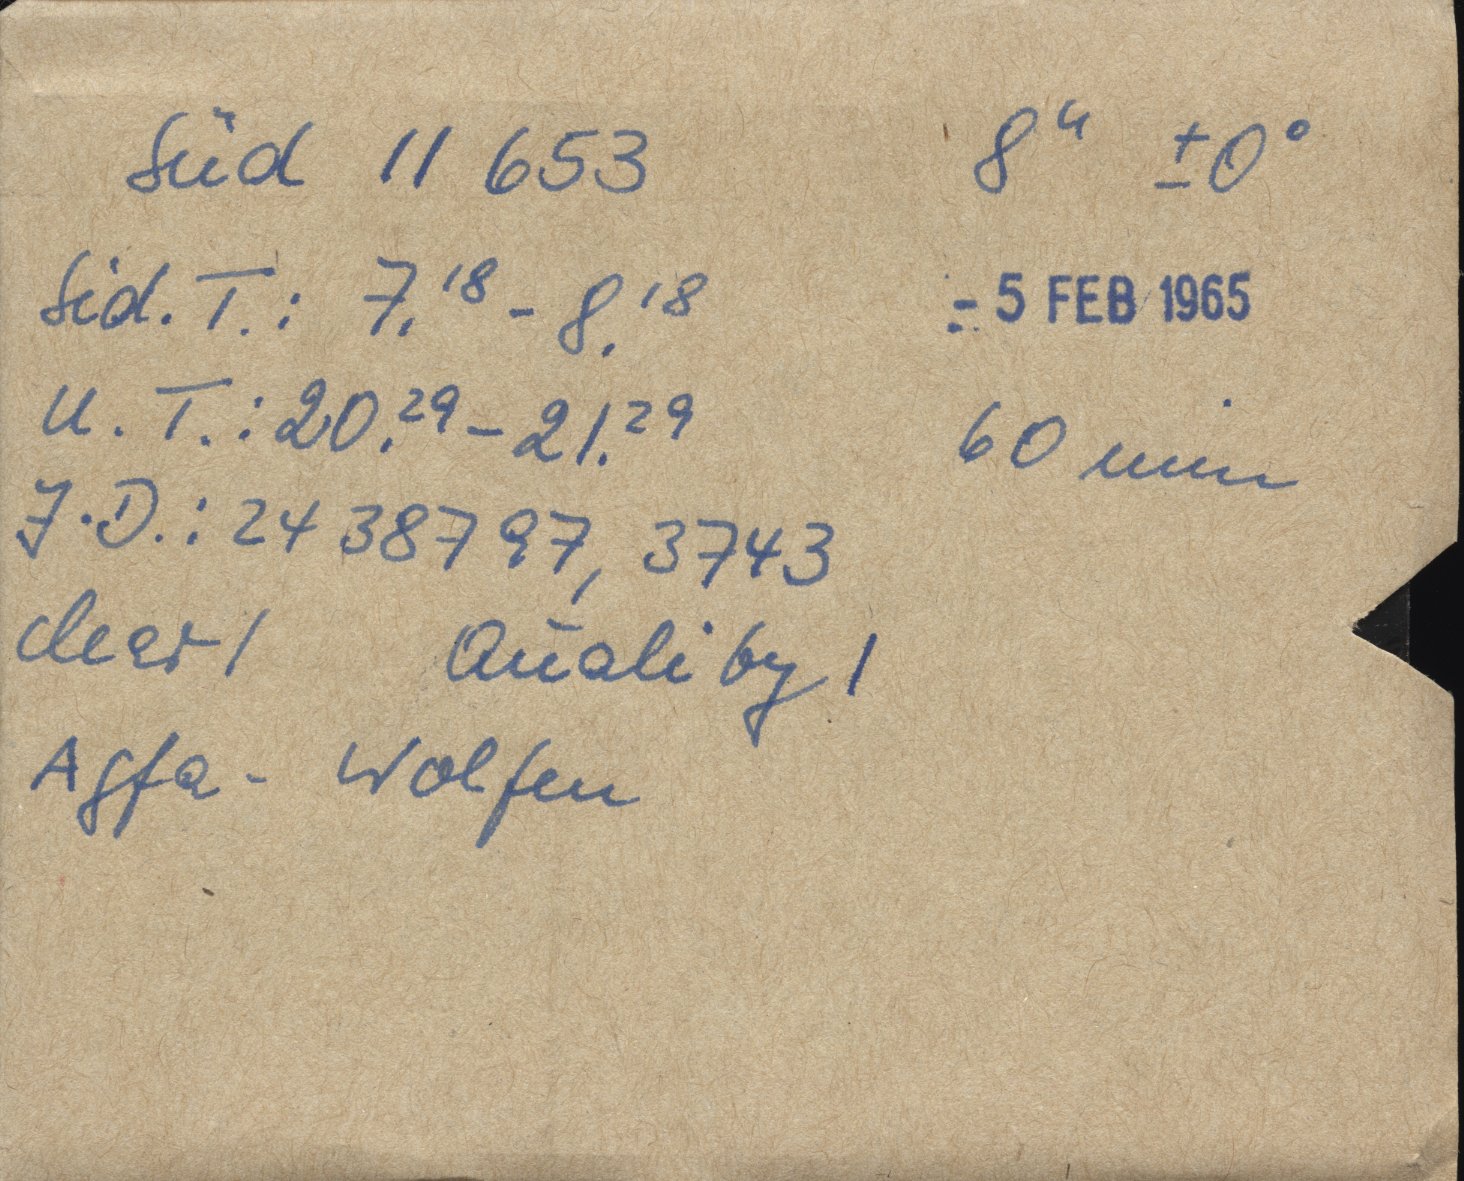 Süd 11 653 8ʰ ±0°
Sid. T.: 7.18 - 8.18 - 5 FEB 1965
U. T.: 20.29 - 21.29 60 min
J.D.: 24 38797, 3743
clear! Quality!
Agfa - Wolfen